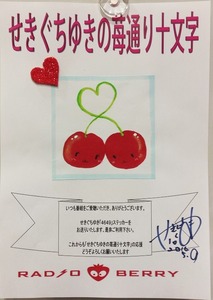 せきぐちゆきの苺通り十文字
いつも番組をご聴取いただき、ありがとうございます。
せきぐちゆきが「4649」ステッカーを
お送りいたします。是非ご利用下さい。
これからも「せきぐちゆきの苺通り十文字」の応援
どうぞよろしくお願いいたします
2016
RADIO BERRY